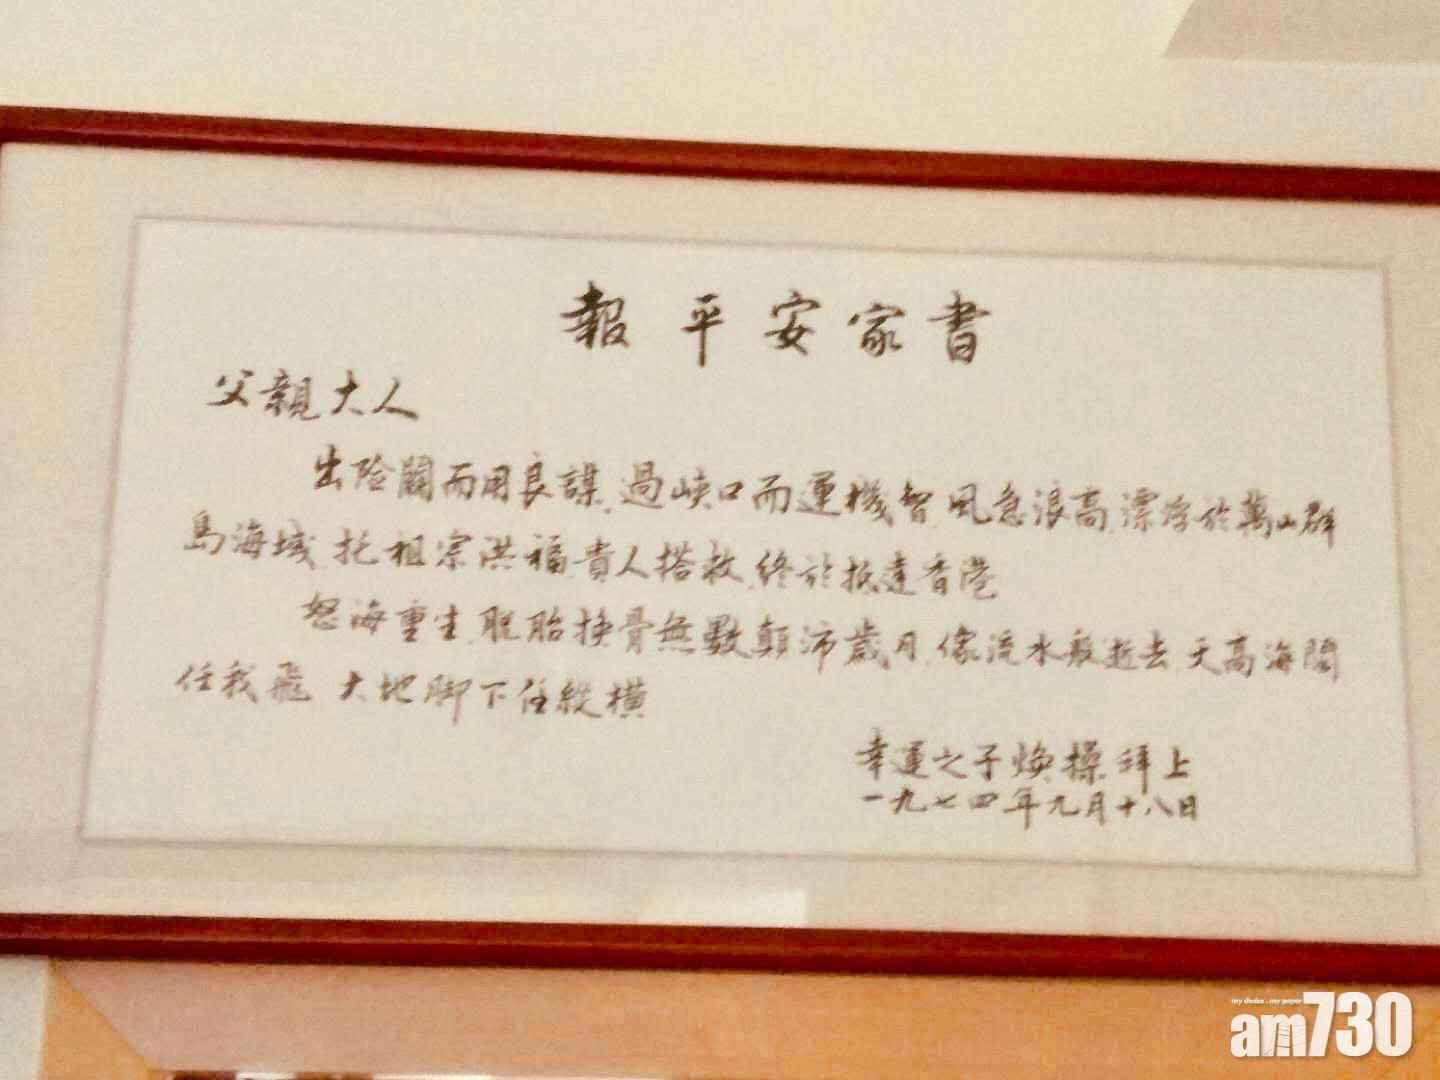 報平安家書
父親大人
出险關而用良謀,過峽口而運機智,風急浪高,漂浮於萬山群
島海域,托祖宗洪福,貴人搭救,終於抵達香港
怒海重生,脫胎換骨無數顛沛歲月,像流水般逝去,天高海闊
任我飛 大地脚下任縱橫
幸運之子煥操拜上
一九七四年九月十八日
my choice . my paper
am730